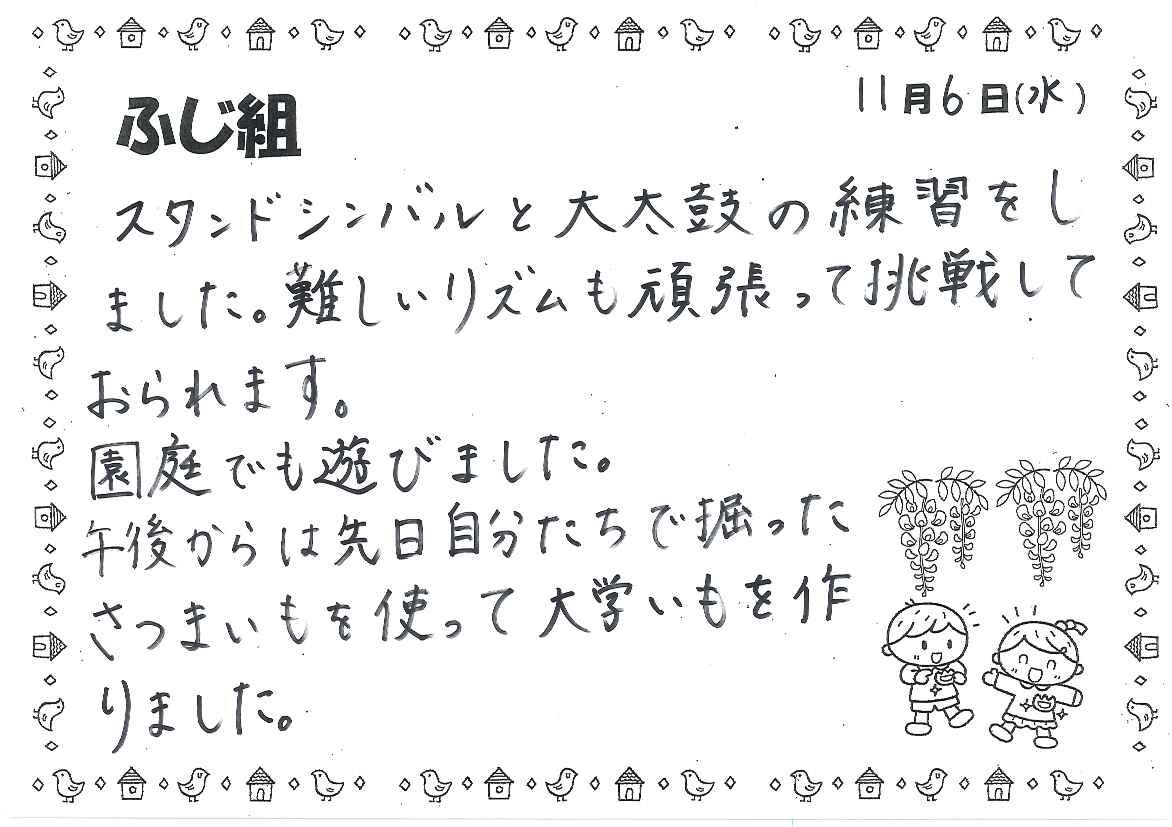 11月6日(水)
ふじ組
スタンドシンバルと大太鼓の練習をし
ました。難しいリズムも頑張って挑戦して
おられます。
園庭でも遊びました。
午後からは先日自分たちで掘った
さつまいもを使って大学いもを作
りました。